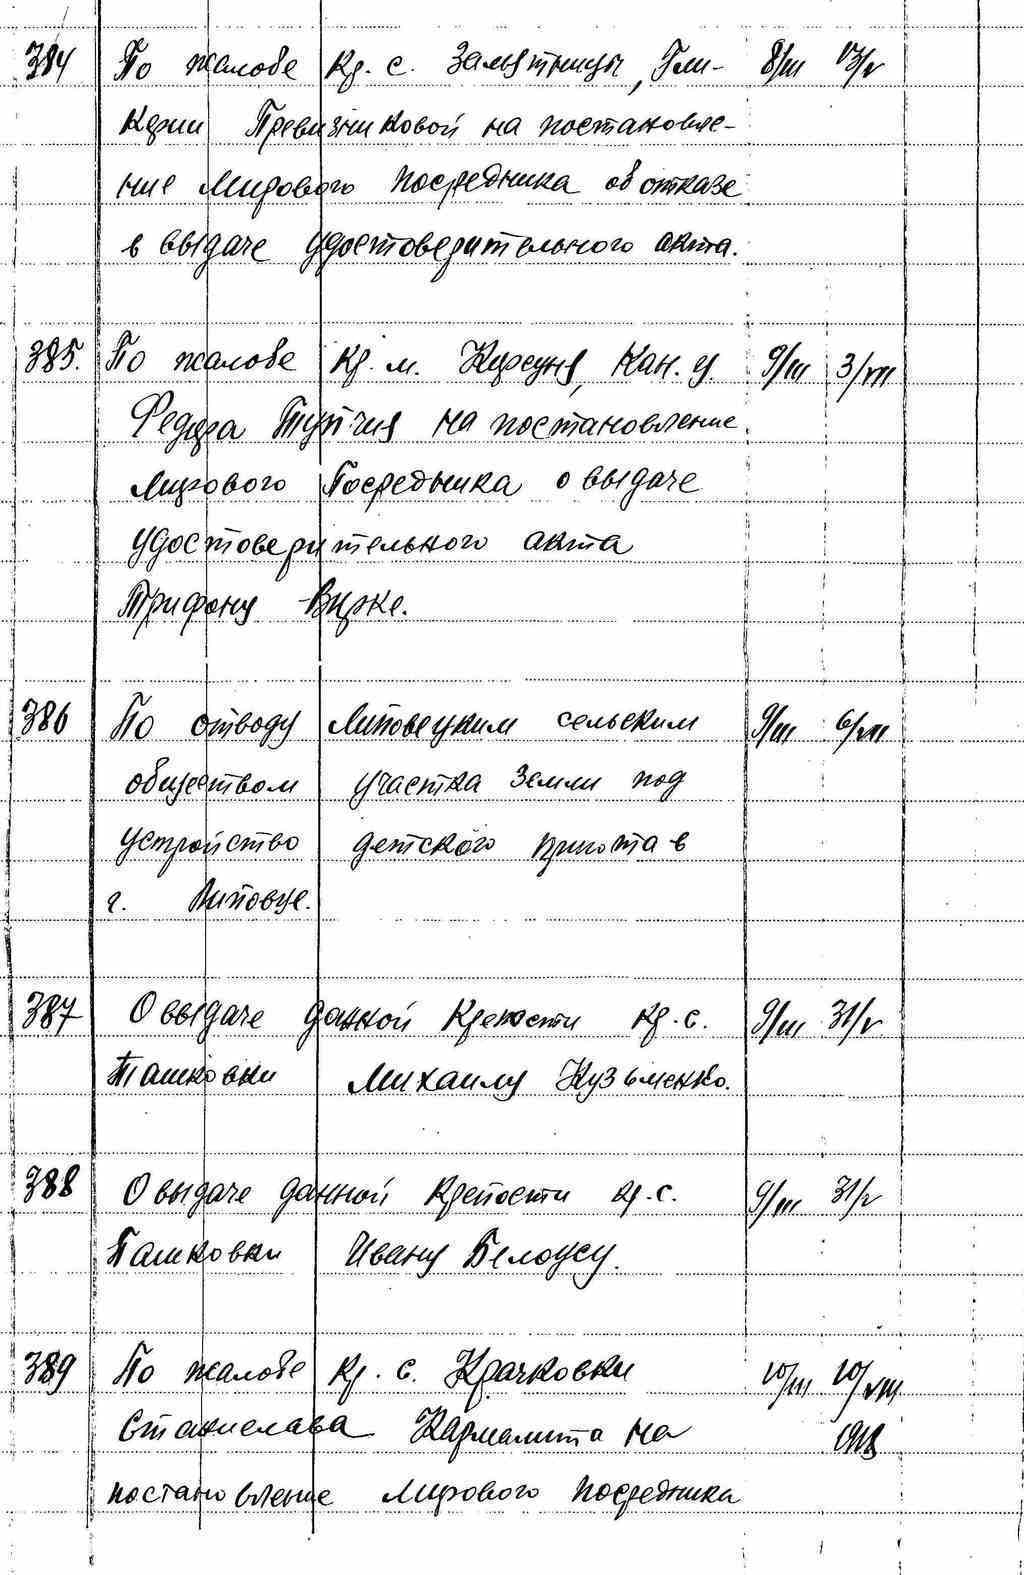 384 По жалобе Кр. с. Зальятницы, Гли- 8/III 13/V
керии Превизниковой на постановле-
ние Мирового посредника об отказе
в выдаче удостоверительного акта.
385. По жалобе Кр. м. Корсуня, Кан. у. 9/III 3/VII
Федора Тупчия на постановление
Мирового Посредника о выдаче
удостоверительного акта
Трифону Вирке.
386 По отводу Липовецким сельским 9/III 6/VII
обществом участка земли под
устройство детского приюта в
г. Липовце.
387 О выдаче данной крепости кр. с. 9/III 31/V
Пашковки Михаилу Кузьменко.
388 О выдаче данной крепости кр. с. 9/III 31/V
Пашковки Ивану Белоусу.
389 По жалобе Кр. с. Крачковки 10/III 10/VIII
Станислава Кармалита на
постановление Мирового посредника